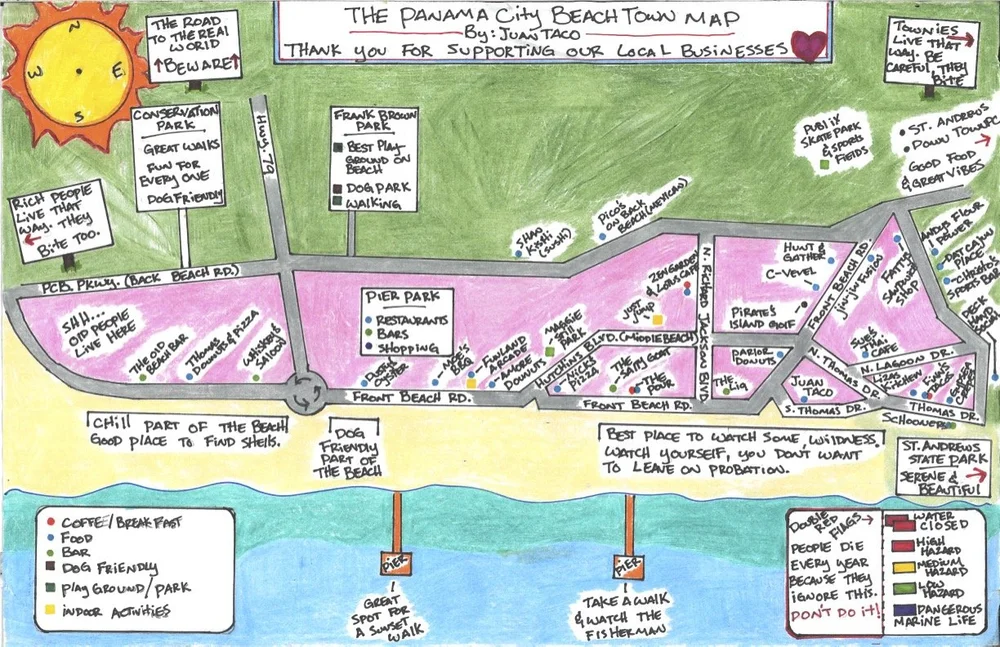 THE PANAMA CITY BEACH TOWN MAP
By: JUAN TACO
THANK YOU FOR SUPPORTING OUR LOCAL BUSINESSES
N
W
E
S
THE ROAD
TO THE REAL
WORLD
BEWARE
TOWNIES
LIVE THAT
WAY. BE
CAREFUL, THEY
BITE
CONSERVATION
PARK
GREAT WALKS
FUN FOR
EVERY ONE
DOG FRIENDLY
HWY. 79
FRANK BROWN
PARK
BEST PLAY
GROUND ON
BEACH
DOG PARK
WALKING
PUBLIX
SKATE PARK
& SPORTS
FIELDS
ST. ANDREWS
DOWN TOWN PC
GOOD FOOD
& GREAT VIBES
RICH PEOPLE
LIVE THAT
WAY. THEY
BITE TOO.
PCB. PKWY. (BACK BEACH RD.)
SHAN
KISHI
(SUSHI)
PICO'S
ON BACK
BEACH (MEXICAN)
ANDYS FLOUR
POWER
DAT CAJUN
PLACE
SPORTS BAR
SHH...
OLD PEOPLE
LIVE HERE
THE OLD
BEACH BAR
THOMAS
DONUTS & PIZZA
WHISKEY'S
SALOON
PIER PARK
RESTAURANTS
BARS
SHOPPING
DUSTY'S
OYSTER
MOE'S
BBQ
FUNLAND
ARCADE
AMORE
DONUTS
MAGGIE
STILL
PARK
JUST
JUMP
ZEN GARDEN
& LOTUS CAFE
N. RICHARD JACKSON BLVD.
HUNT &
GATHER
C-LEVEL
PIRATE'S
ISLAND GOLF
FRONT BEACH RD.
JIN-JIN FUSION
SANDWICH
SHOP
HUTCHINS BLVD. (MIDDLE BEACH)
PIZZA
THE
SALTY GOAT
THE
POUR
THE
GIG
PARLOR
DONUTS
THAI
CAFE
JUAN
TACO
N. THOMAS DR.
N. LAGOON DR.
LIZAS
KITCHEN
FINNS
S. THOMAS DR.
THOMAS DR.
SCHOONERS
FRONT BEACH RD.
FRONT BEACH RD.
CHILL PART OF THE BEACH
GOOD PLACE TO FIND SHELLS.
DOG
FRIENDLY
PART OF
THE BEACH
BEST PLACE TO WATCH SOME, WILDNESS.
WATCH YOURSELF, YOU DON'T WANT
TO LEAVE ON PROBATION.
ST. ANDREWS
STATE PARK
SERENE &
BEAUTIFUL
COFFEE/BREAKFAST
FOOD
BAR
DOG FRIENDLY
PLAY GROUND/PARK
INDOOR ACTIVITIES
PIER
GREAT
SPOT FOR
A SUNSET
WALK
PIER
TAKE A WALK
& WATCH THE
FISHERMAN
DOUBLE
RED
FLAGS
PEOPLE DIE
EVERY YEAR
BECAUSE THEY
IGNORE THIS.
DON'T DO IT!
WATER
CLOSED
HIGH
HAZARD
MEDIUM
HAZARD
LOW
HAZARD
DANGEROUS
MARINE LIFE